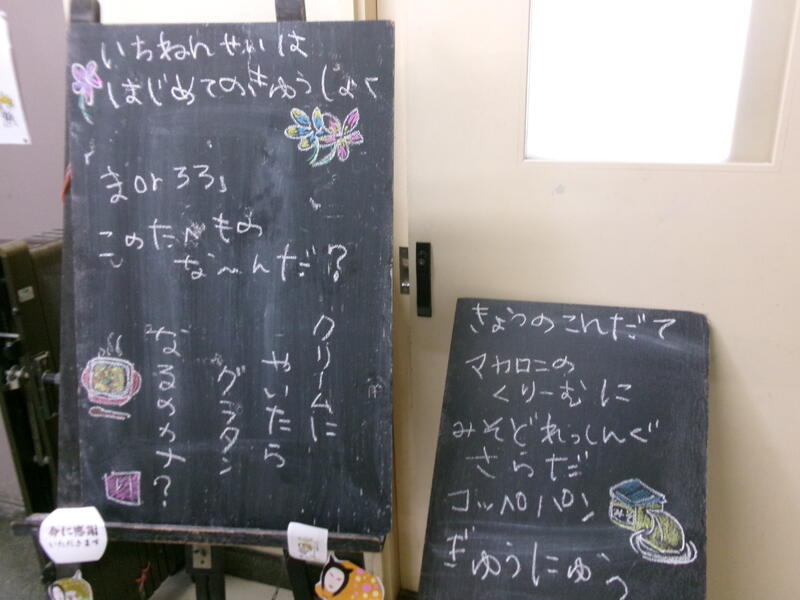 いちねんせいは
はじめてのきゅうしょく
まor33」
このたべもの
なーんだ?
クリームに
やいたら
グラタン
なるのカナ?
命に感謝
いただきます
きょうのこんだて
マカロニの
くりーむに
みそどれっしんぐ
さらだ
コッペパン
ぎゅうにゅう